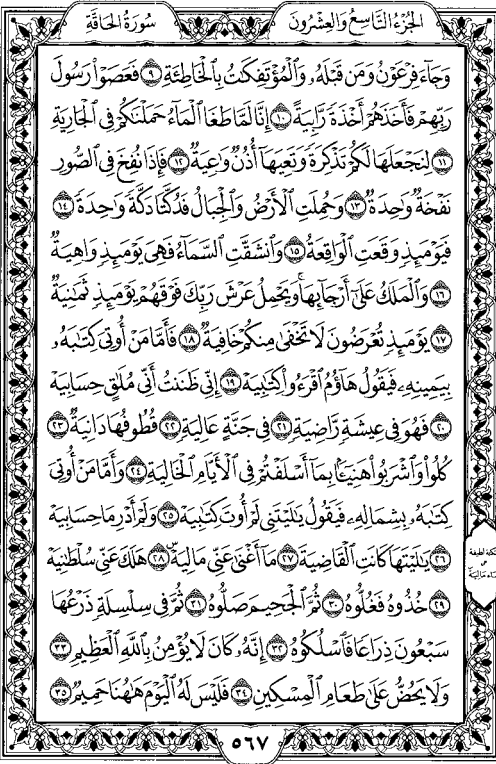 الجُزْءُ التَّاسِعُ وَالعِشْرُونَ
سُورَةُ الحَاقَّةِ
وَجَآءَ فِرْعَوْنُ وَمَن قَبْلَهُۥ وَٱلْمُؤْتَفِكَٰتُ بِٱلْخَاطِئَةِ ٩ فَعَصَوْا۟ رَسُولَ
رَبِّهِمْ فَأَخَذَهُمْ أَخْذَةً رَّابِيَةً ١٠ إِنَّا لَمَّا طَغَا ٱلْمَآءُ حَمَلْنَٰكُمْ فِى ٱلْجَارِيَةِ
١١ لِنَجْعَلَهَا لَكُمْ تَذْكِرَةً وَتَعِيَهَآ أُذُنٌ وَٰعِيَةٌ ١٢ فَإِذَا نُفِخَ فِى ٱلصُّورِ
نَفْخَةٌ وَٰحِدَةٌ ١٣ وَحُمِلَتِ ٱلْأَرْضُ وَٱلْجِبَالُ فَدُكَّتَا دَكَّةً وَٰحِدَةً ١٤
فَيَوْمَئِذٍ وَقَعَتِ ٱلْوَاقِعَةُ ١٥ وَٱنشَقَّتِ ٱلسَّمَآءُ فَهِىَ يَوْمَئِذٍ وَاهِيَةٌ
١٦ وَٱلْمَلَكُ عَلَىٰٓ أَرْجَآئِهَا ۚ وَيَحْمِلُ عَرْشَ رَبِّكَ فَوْقَهُمْ يَوْمَئِذٍ ثَمَٰنِيَةٌ
١٧ يَوْمَئِذٍ تُعْرَضُونَ لَا تَخْفَىٰ مِنكُمْ خَافِيَةٌ ١٨ فَأَمَّا مَنْ أُوتِىَ كِتَٰبَهُۥ
بِيَمِينِهِۦ فَيَقُولُ هَآؤُمُ ٱقْرَءُوا۟ كِتَٰبِيَهْ ١٩ إِنِّى ظَنَنتُ أَنِّى مُلَٰقٍ حِسَابِيَهْ
٢٠ فَهُوَ فِى عِيشَةٍ رَّاضِيَةٍ ٢١ فِى جَنَّةٍ عَالِيَةٍ ٢٢ قُطُوفُهَا دَانِيَةٌ ٢٣
كُلُوا۟ وَٱشْرَبُوا۟ هَنِيٓـًٔۢا بِمَآ أَسْلَفْتُمْ فِى ٱلْأَيَّامِ ٱلْخَالِيَةِ ٢٤ وَأَمَّا مَنْ أُوتِىَ
كِتَٰبَهُۥ بِشِمَالِهِۦ فَيَقُولُ يَٰلَيْتَنِى لَمْ أُوتَ كِتَٰبِيَهْ ٢٥ وَلَمْ أَدْرِ مَا حِسَابِيَهْ
٢٦ يَٰلَيْتَهَا كَانَتِ ٱلْقَاضِيَةَ ٢٧ مَآ أَغْنَىٰ عَنِّى مَالِيَهْ ۜ ٢٨ هَلَكَ عَنِّى سُلْطَٰنِيَهْ
٢٩ خُذُوهُ فَغُلُّوهُ ٣٠ ثُمَّ ٱلْجَحِيمَ صَلُّوهُ ٣١ ثُمَّ فِى سِلْسِلَةٍ ذَرْعُهَا
سَبْعُونَ ذِرَاعًا فَٱسْلُكُوهُ ٣٢ إِنَّهُۥ كَانَ لَا يُؤْمِنُ بِٱللَّهِ ٱلْعَظِيمِ ٣٣
وَلَا يَحُضُّ عَلَىٰ طَعَامِ ٱلْمِسْكِينِ ٣٤ فَلَيْسَ لَهُ ٱلْيَوْمَ هَٰهُنَا حَمِيمٌ ٣٥
لطيفة
ماليه
٥٦٧